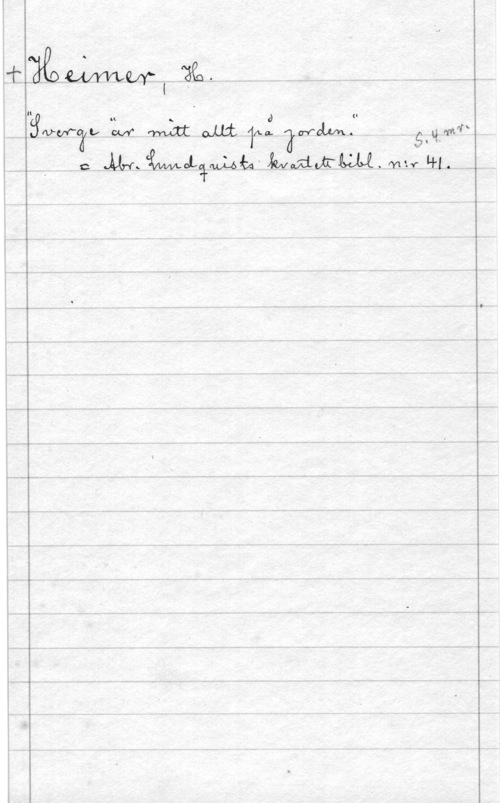 + Heimer, H.
"Sverge är mitt allt på jorden." S. 4 mr.
= Abr. Lundquists kvartettbibl. n:r 41.